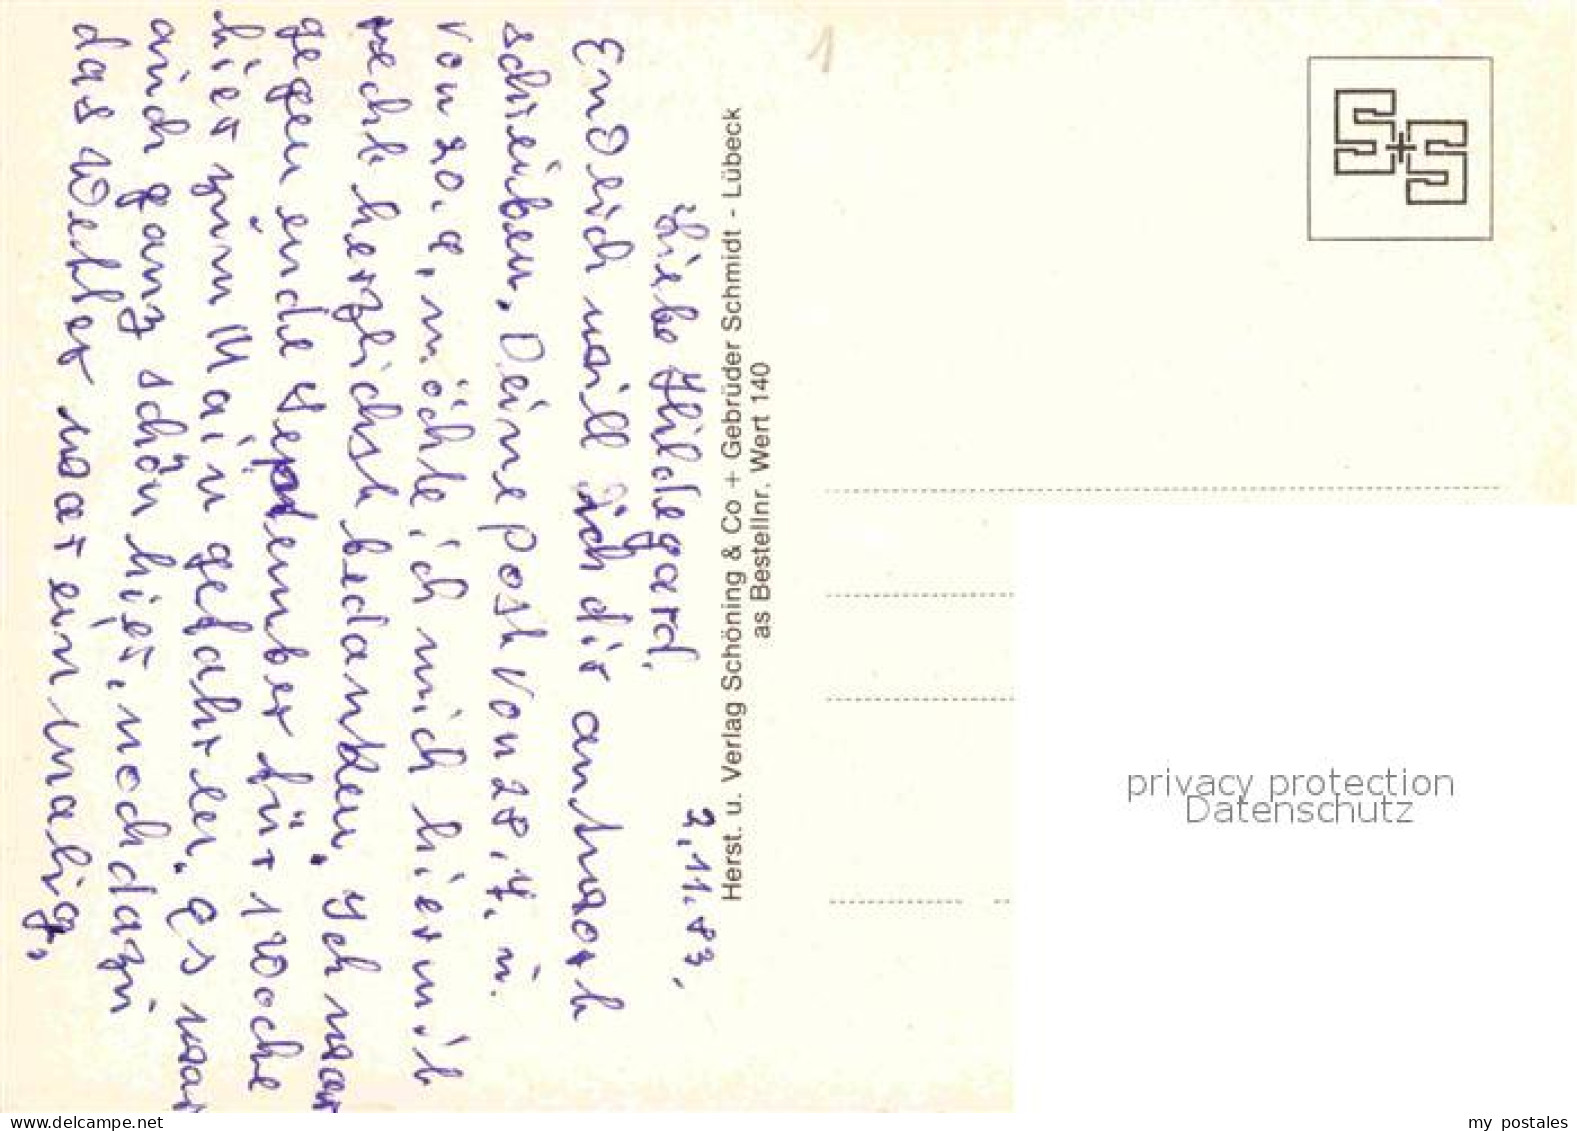 2.11.83.
Liebe Hildegard.
Endlich will ich dir antwort
schreiben. Deine Post von 28.7. u.
von 20.9. möchte ich mich hiermit
recht herzlichst bedanken. Ich war
gegen ende September für 1 Woche
hier zum Main gefahren. Es war
auch ganz schön hier, noch dazu
das Wetter war einmalig,
Herst. u. Verlag Schöning & Co + Gebrüder Schmidt - Lübeck
as Bestellnr. Wert 140
1
S+S
privacy protection
Datenschutz
my postales
www.delcampe.net